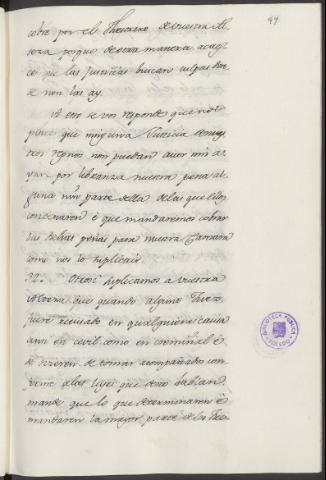 cobre por el Thesorero de vuestra Al
teza porque de otra manera acaes
ce que las justicias buscan culpas don
de non las ay.
A esto se vos responde que nos
place que ninguna Justicia de nues
tros regnos non puedan aver nin ayan
por libranza nuestra pena al
guna nin parte della de las que ellos
condenaren é que mandaremos cobrar
las dichas penas para nuestra Camara
como nos lo suplicais.
32. Otrosi suplicamos a vuestra
Alteza que quando algun Juez
fuere recusado en qualquiera causa
ansi en cevil como en creminal é
se oviere de tomar acompañado con
forme a las leyes que deso hablan,
mande que lo que determinaren é
mandaren la mayor parte de los Jue-
BIBLIOTECA PUBLICA
TOLEDO